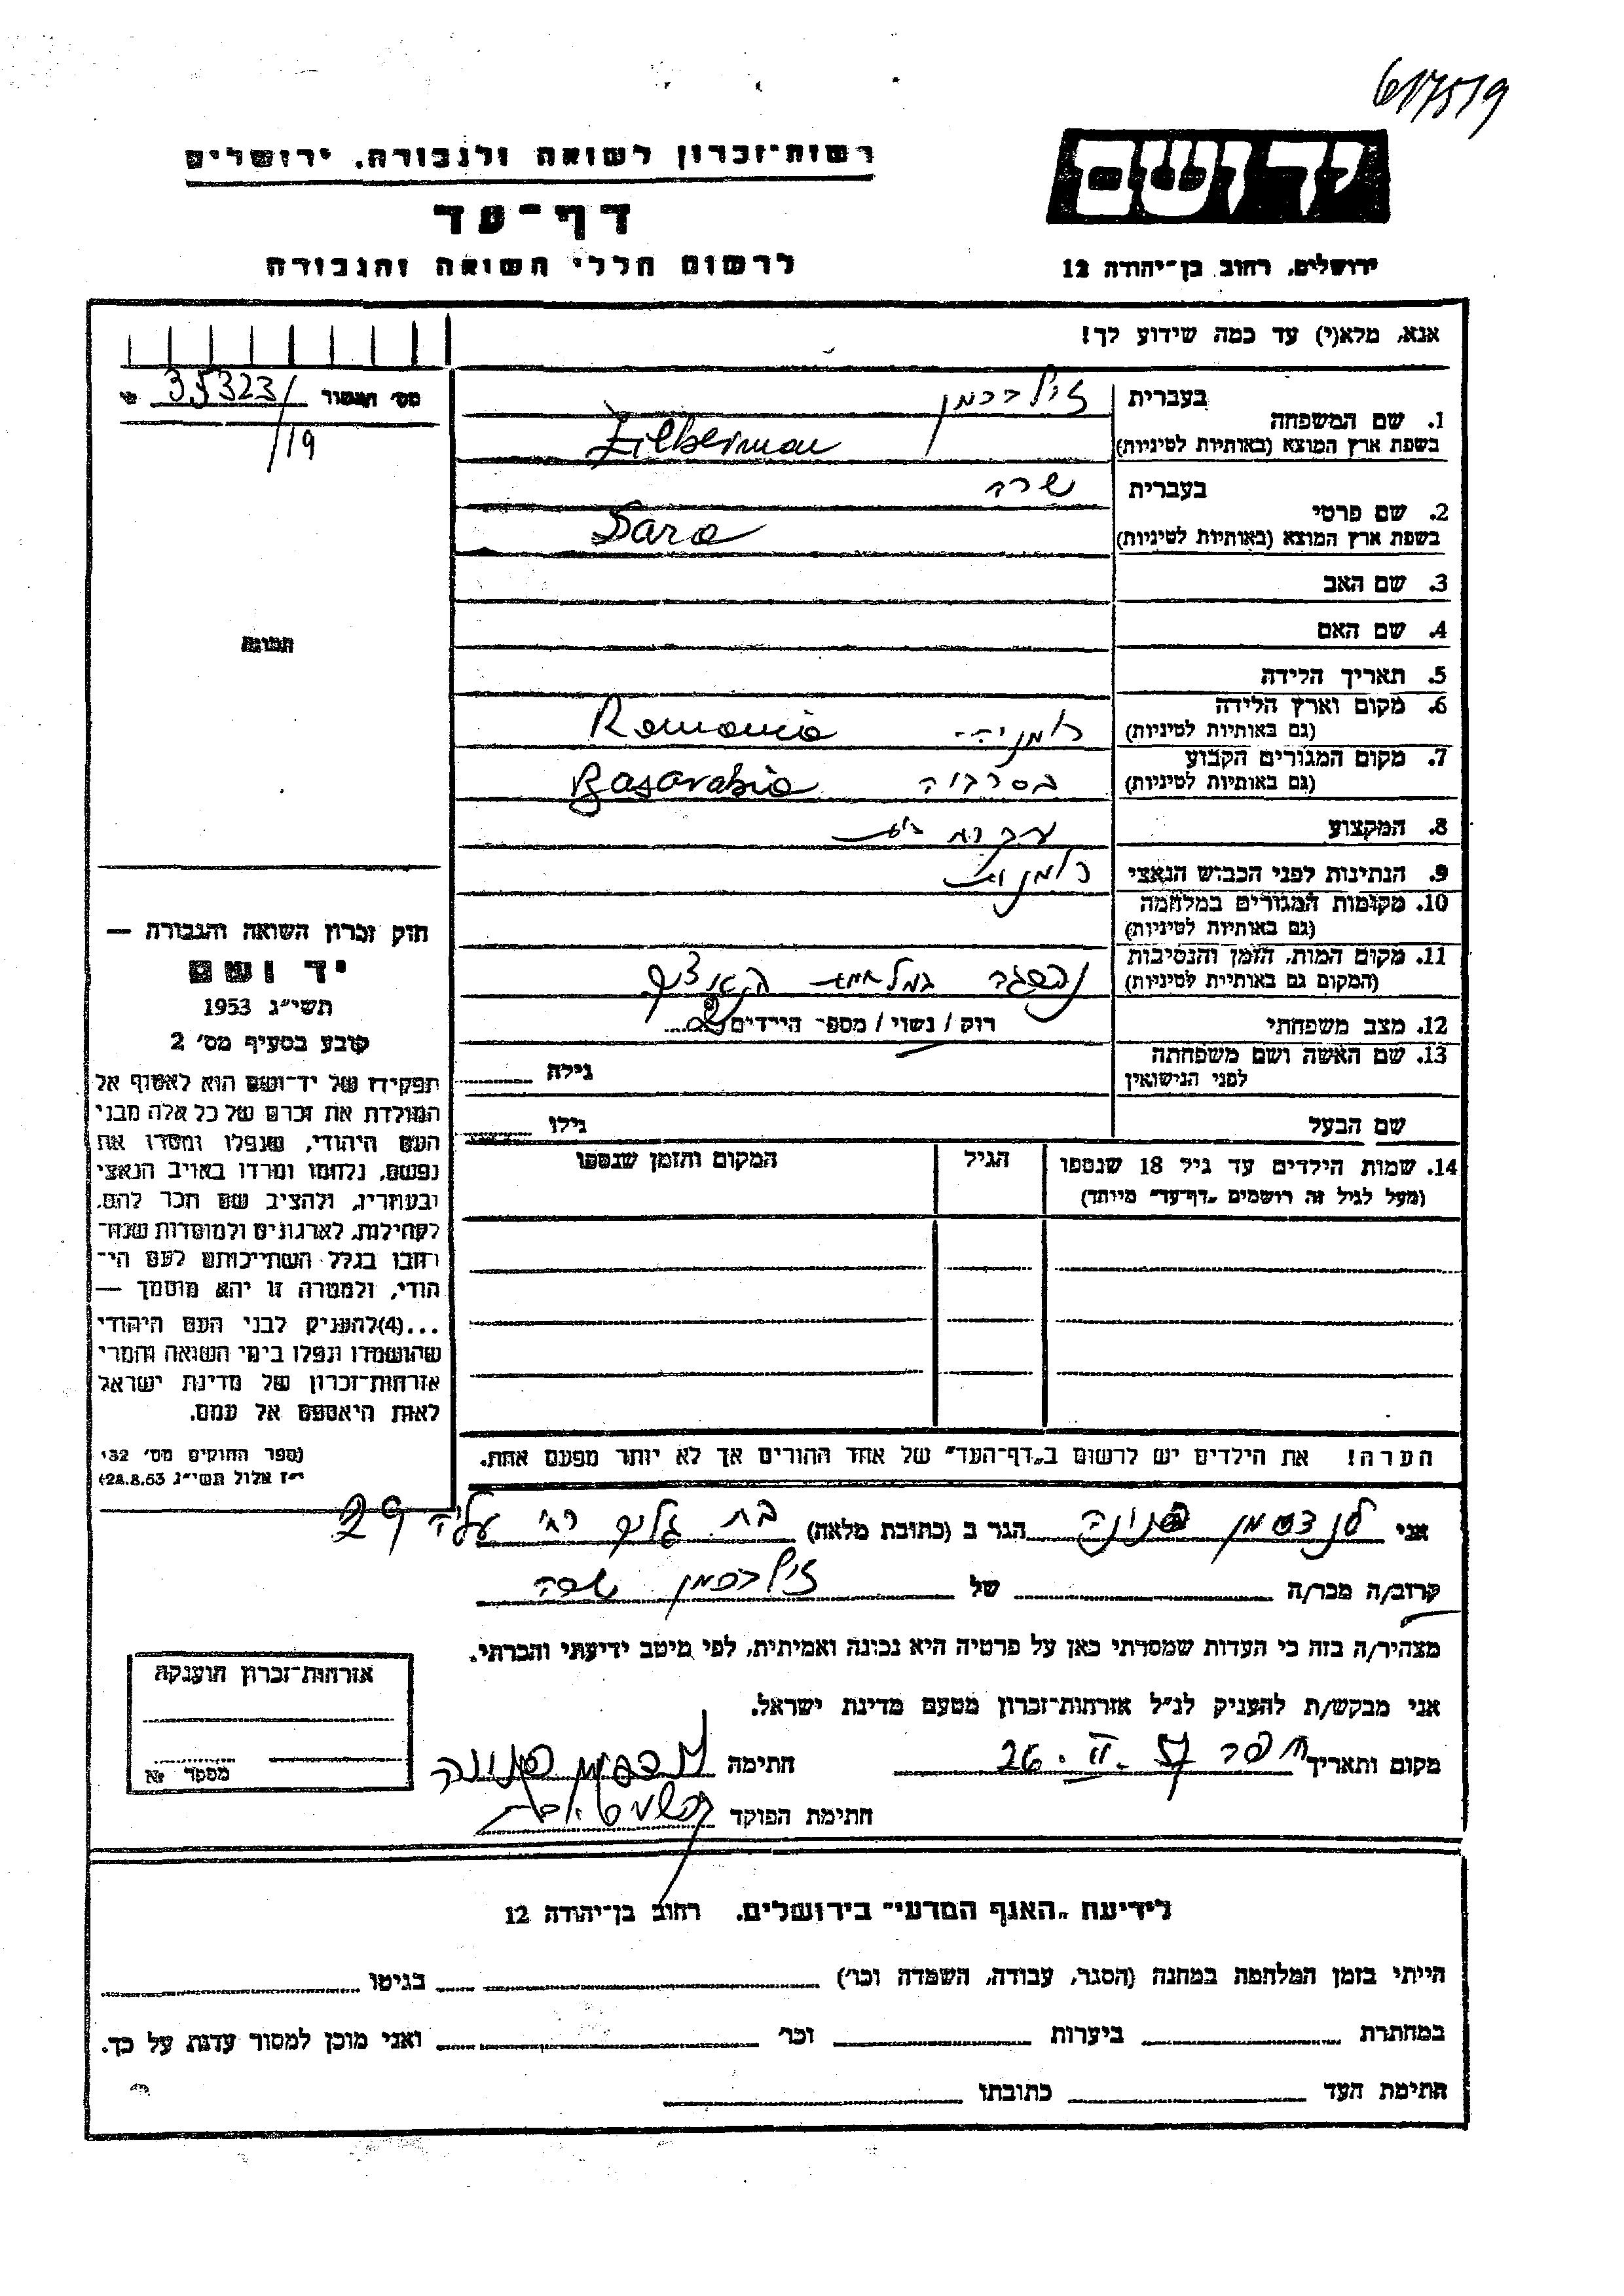 617519
יד ושם
ירושלים, רחוב בן־יהודה 12
רשות־זכרון לשואה ולגבורה, ירושלים
דף־עד
לרשום חללי השואה והגבורה
אנא, מלא(י) עד כמה שידוע לך!
1. שם המשפחה
בעברית זילברמן
בשפת ארץ המוצא (באותיות לטיניות) Zilberman
2. שם פרטי
בעברית שרה
בשפת ארץ המוצא (באותיות לטיניות) Sara
3. שם האב
4. שם האם
5. תאריך הלידה
6. מקום וארץ הלידה
(גם באותיות לטיניות) רומניה Romania
7. מקום המגורים הקבוע
(גם באותיות לטיניות) בסרביה Basarabia
8. המקצוע עקרת בית
9. הנתינות לפני הכבוש הנאצי
10. מקומות המגורים במלחמה
(גם באותיות לטיניות)
11. מקום המות, הזמן והנסיבות
(המקום גם באותיות לטיניות)
12. מצב משפחתי רוק / נשוי / מספר הילדים
13. שם האשה ושם משפחתה
לפני הנישואין גילה
שם הבעל גילו
14. שמות הילדים עד גיל 18 שנספו הגיל המקום והזמן שנספו
(מעל לגיל זה רושמים „דף־עד״ מיוחד)
הערה! את הילדים יש לרשום ב„דף־העד״ של אחד ההורים אך לא יותר מפעם אחת.
35323/
/19
חוק זכרון השואה והגבורה —
יד ושם
תשי״ג 1953
קובע בסעיף מס׳ 2
תפקידו של יד־ושם הוא לאסוף אל
המולדת את זכרם של כל אלה מבני
העם היהודי, שנפלו ומסרו את
נפשם, נלחמו ומרדו באויב הנאצי
ובעוזריו, ולהציב שם וזכר להם,
לקהילות, לארגונים ולמוסדות שנח־
רבו בגלל השתייכותם לעם הי־
הודי, ולמטרה זו יהא מוסמך —
...(4)להעניק לבני העם היהודי
שהושמדו ונפלו בימי השואה והמרי
אזרחות־זכרון של מדינת ישראל
לאות היאספם אל עמם.
(ספר החוקים מס׳ 132
י״ז אלול תשי״ג 28.8.53)
אני הגר ב (כתובת מלאה) בת גלים רח׳ עליה 29
קרוב/ה מכר/ה של זילברמן שרה
מצהיר/ה בזה כי העדות שמסרתי כאן על פרטיה היא נכונה ואמיתית, לפי מיטב ידיעתי והכרתי.
אני מבקש/ת להעניק לנ״ל אזרחות־זכרון מטעם מדינת ישראל.
מקום ותאריך חיפה 26.II.57 חתימה
חתימת הפוקד
אזרחות־זכרון הוענקה
מספר №
לידיעת „האגף המדעי״ בירושלים, רחוב בן־יהודה 12
הייתי בזמן המלחמה במחנה (הסגר, עבודה, השמדה וכו׳) בגיטו
במחתרת ביערות וכו׳ ואני מוכן למסור עדות על כך.
חתימת העד כתובתו